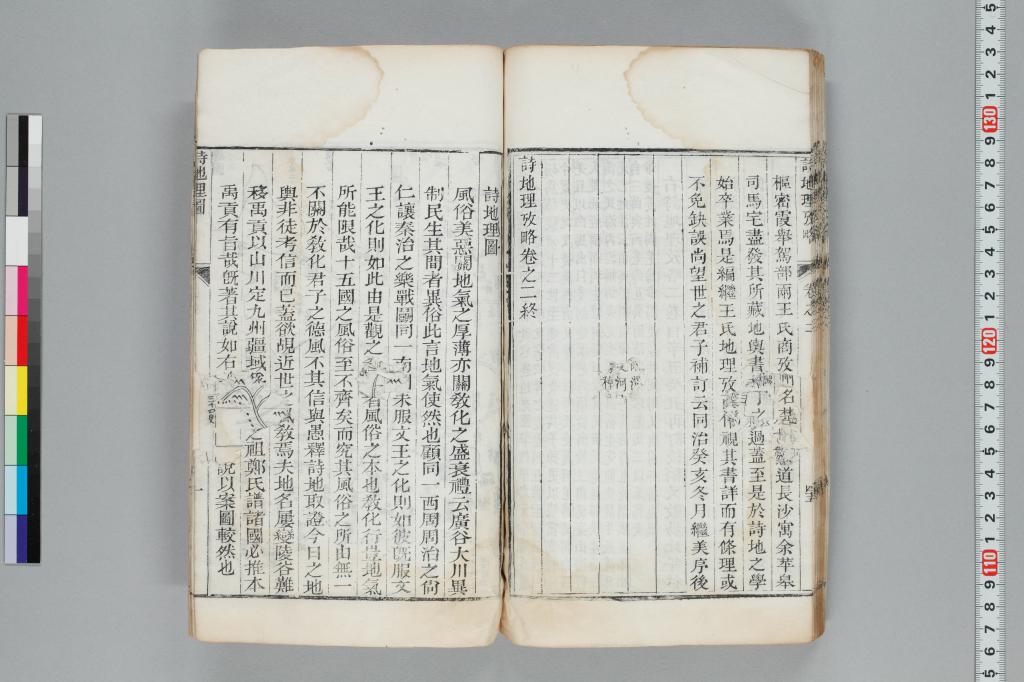 詩地理攷略 卷之二
樞密霞舉駕部兩王氏商攷
道長沙寓余苹皋
司馬宅盡發其所藏地輿書
之過蓋至是於詩地之學
始卒業焉是編繼王氏地理攷
視其書詳而有條理或
不免缺誤尚望世之君子補訂云同治癸亥冬月繼美序後
詩地理攷略卷之二終
詩地理圖
風俗美惡關地氣之厚薄亦關敎化之盛衰禮云廣谷大川異
制民生其間者異俗此言地氣使然也顧同一西周周治之尙
仁讓秦治之樂戰鬬同一南國未服文王之化則如彼旣服文
王之化則如此由是觀之
風俗之本也敎化行豈地氣
所能限哉十五國之風俗至不齊矣而究其風俗之所由無一
不關於敎化君子之德風不其信與愚釋詩地取證今日之地
輿非徒考信而已蓋欲覘近世之風敎焉夫地名屢變陵谷難
移禹貢以山川定九州疆域
之祖鄭氏譜諸國必推本
禹貢有旨哉旣著其說如右
說以案圖較然也
詩地理圖
一